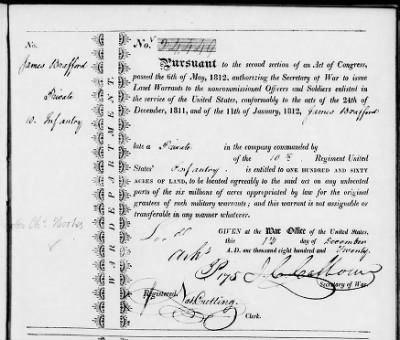 No.
James Brafford
Private
10. Infantry
WAR DEPARTMENT
No. 24,344
Pursuant to the second section of an Act of Congress,
passed the 6th of May, 1812, authorizing the Secretary of War to issue
Land Warrants to the noncommissioned Officers and Soldiers enlisted in
the service of the United States, conformably to the acts of the 24th of
December, 1811, and of the 11th of January, 1812, James Brafford
late a Private in the company commanded by
of the 10th Regiment United
States' Infantry is entitled to ONE HUNDRED AND SIXTY
ACRES OF LAND, to be located agreeably to the said act on any unlocated
parts of the six millions of acres appropriated by law for the original
grantees of such military warrants; and this warrant is not assignable
or transferable in any manner whatever.
GIVEN at the War Office of the United States,
this day of December
A.D. one thousand eight hundred and Twenty.
J. C. Calhoun
Secretary of War.
Registered,
Cutting
Clerk.